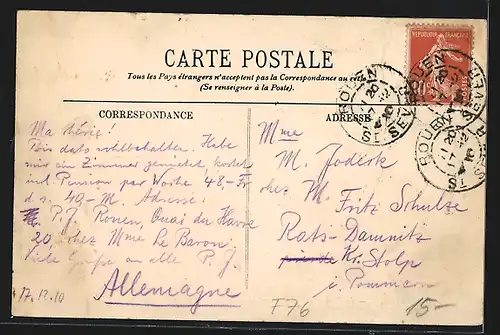 CARTE POSTALE
Tous les Pays étrangers n'acceptent pas la Correspondance au recto
(Se renseigner à la Poste).
CORRESPONDANCE
ADRESSE
REPUBLIQUE FRANÇAISE
POSTES
ROUEN
ST SEVER
ROUEN
ST SEVER
Ma chérie!
Bin da wohlbehalten. Habe
mir ein Zimmer gemietet, kostet
inkl. Pension pro Woche 48,- Fr
40,- M. Adresse:
P. J. Rouen, Quai du Havre
20, chez Mme Le Baron.
Viele Grüße an alle P. J.
Allemagne
17.12.10
Mme
M. Joderk
chez M. Fritz Schulze
Rats-Damnitz
Kr. Stolp
i. Pommern
F76
15-